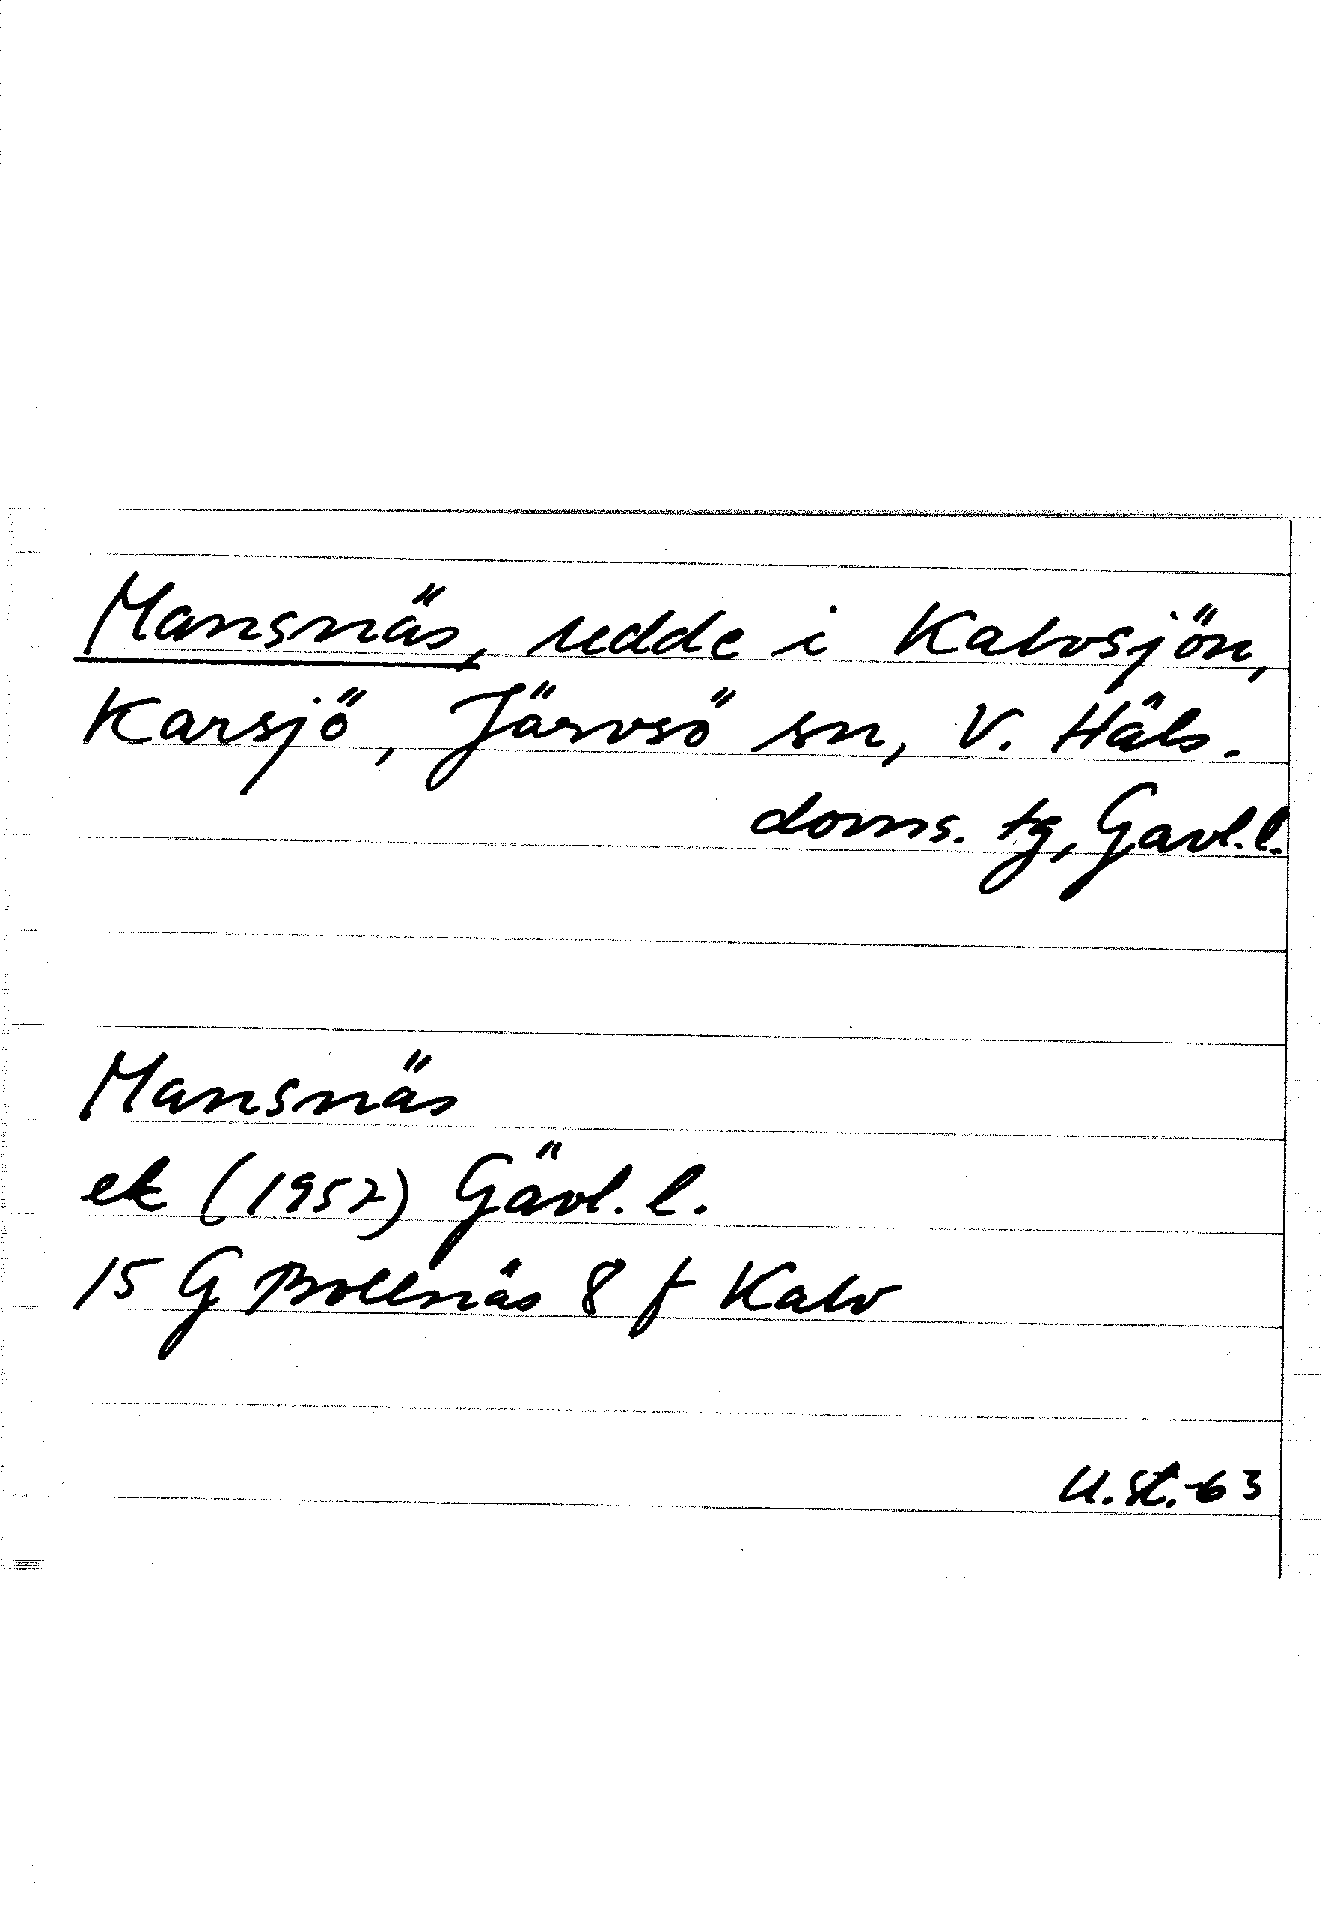 Mansnäs, udde i Kalvsjön,
Karsjö, Järvsö sn, V. Häls.
doms. tg, Gävl.l.
Mansnäs
ek (1957) Gävl. l.
15 G Bollnäs 8 f Kalv
U.St.-63